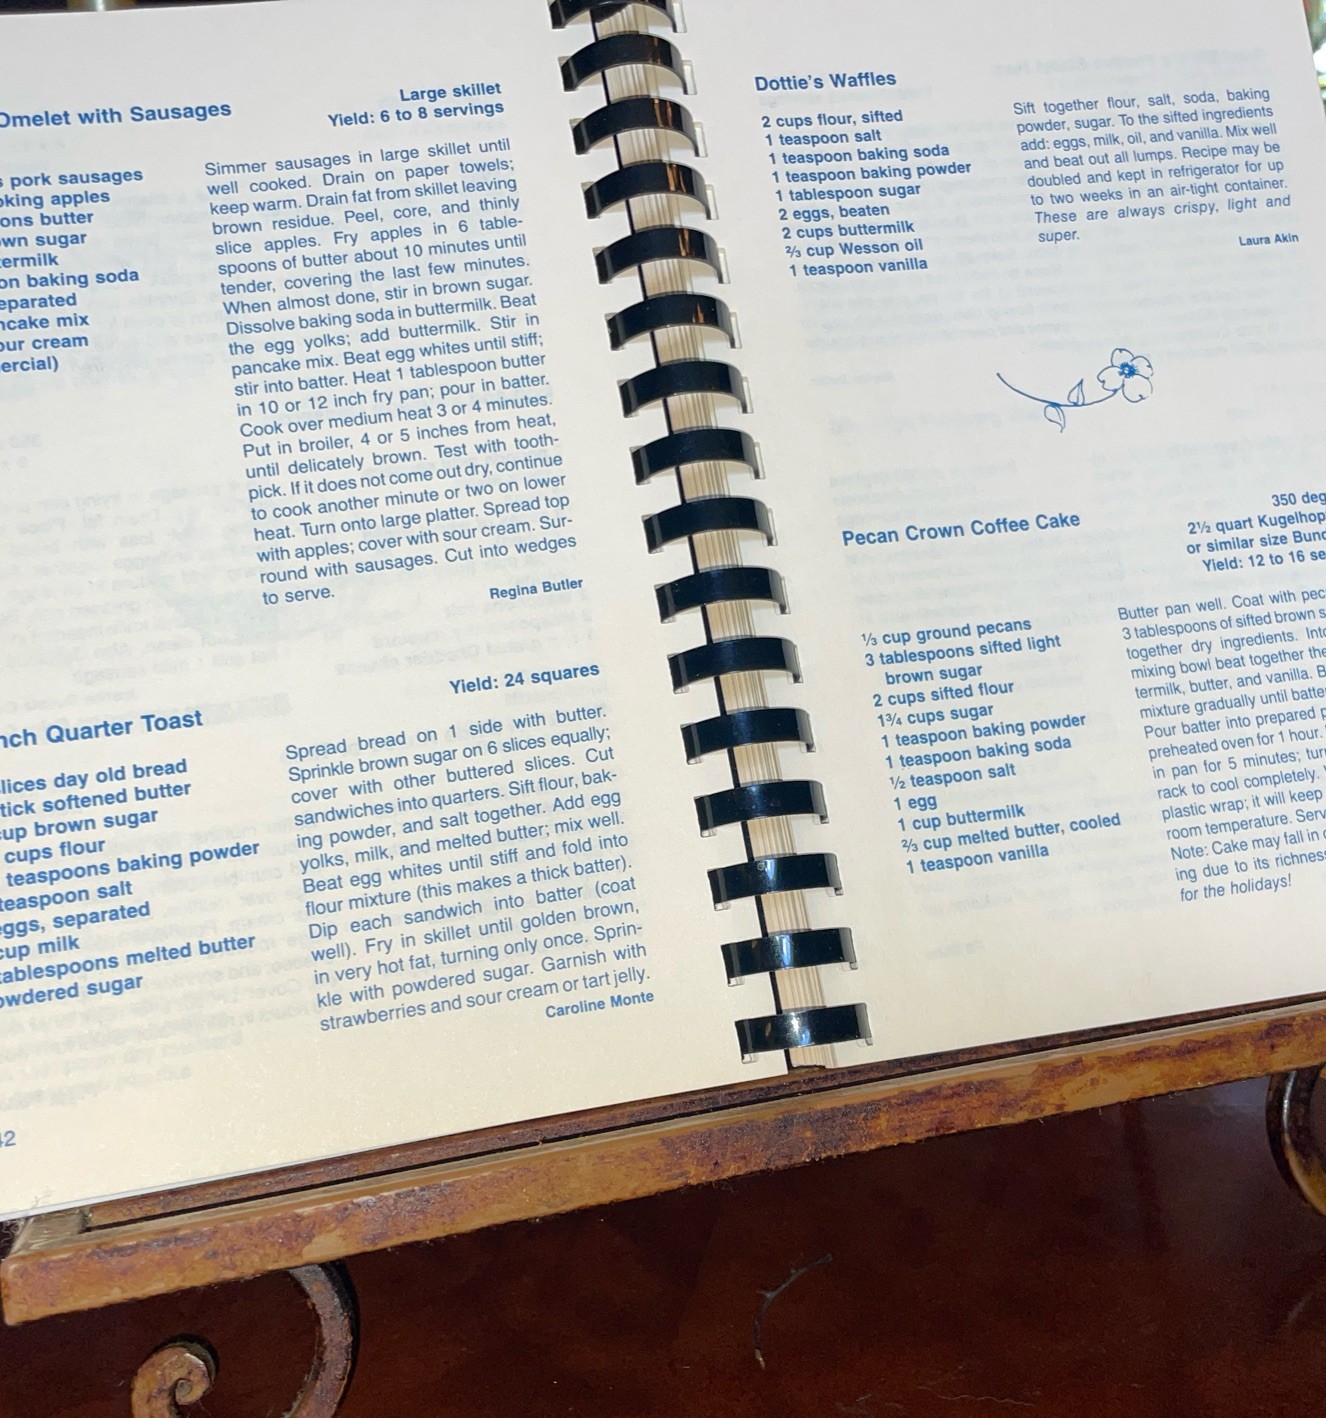 Omelet with Sausages
Large skillet
Yield: 6 to 8 servings
pork sausages
apples
butter
sugar
on baking soda
mix
cream
Simmer sausages in large skillet until
well cooked. Drain on paper towels;
keep warm. Drain fat from skillet leaving
brown residue. Peel, core, and thinly
slice apples. Fry apples in 6 table-
spoons of butter about 10 minutes until
tender, covering the last few minutes.
When almost done, stir in brown sugar.
Dissolve baking soda in buttermilk. Beat
the egg yolks; add buttermilk. Stir in
pancake mix. Beat egg whites until stiff;
stir into batter. Heat 1 tablespoon butter
in 10 or 12 inch fry pan; pour in batter.
Cook over medium heat 3 or 4 minutes.
Put in broiler, 4 or 5 inches from heat,
until delicately brown. Test with tooth-
pick. If it does not come out dry, continue
to cook another minute or two on lower
heat. Turn onto large platter. Spread top
with apples; cover with sour cream. Sur-
round with sausages. Cut into wedges
to serve.
Regina Butler
nch Quarter Toast
Yield: 24 squares
lices day old bread
tick softened butter
cup brown sugar
cups flour
teaspoons baking powder
teaspoon salt
eggs, separated
cup milk
tablespoons melted butter
owdered sugar
Spread bread on 1 side with butter.
Sprinkle brown sugar on 6 slices equally;
cover with other buttered slices. Cut
sandwiches into quarters. Sift flour, bak-
ing powder, and salt together. Add egg
yolks, milk, and melted butter; mix well.
Beat egg whites until stiff and fold into
flour mixture (this makes a thick batter).
Dip each sandwich into batter (coat
well). Fry in skillet until golden brown,
in very hot fat, turning only once. Sprin-
kle with powdered sugar. Garnish with
strawberries and sour cream or tart jelly.
Caroline Monte
Dottie's Waffles
2 cups flour, sifted
1 teaspoon salt
1 teaspoon baking soda
1 teaspoon baking powder
1 tablespoon sugar
2 eggs, beaten
2 cups buttermilk
⅔ cup Wesson oil
1 teaspoon vanilla
Sift together flour, salt, soda, baking
powder, sugar. To the sifted ingredients
add: eggs, milk, oil, and vanilla. Mix well
and beat out all lumps. Recipe may be
doubled and kept in refrigerator for up
to two weeks in an air-tight container.
These are always crispy, light and
super.
Laura Akin
Pecan Crown Coffee Cake
350 deg
2½ quart Kugelhop
or similar size Bund
Yield: 12 to 16 se
⅓ cup ground pecans
3 tablespoons sifted light
brown sugar
2 cups sifted flour
1¾ cups sugar
1 teaspoon baking powder
1 teaspoon baking soda
½ teaspoon salt
1 egg
1 cup buttermilk
⅔ cup melted butter, cooled
1 teaspoon vanilla
Butter pan well. Coat with pec
3 tablespoons of sifted brown s
together dry ingredients. Into
mixing bowl beat together the
termilk, butter, and vanilla. B
mixture gradually until batte
Pour batter into prepared p
preheated oven for 1 hour.
in pan for 5 minutes; tur
rack to cool completely.
plastic wrap; it will keep
room temperature. Serv
Note: Cake may fall in
ing due to its richness
for the holidays!